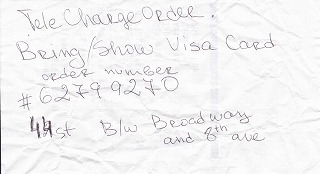 Tele Charge Order.
Bring/Show Visa Card
order number
#62799270
44st B/w Broadway
and 8th ave